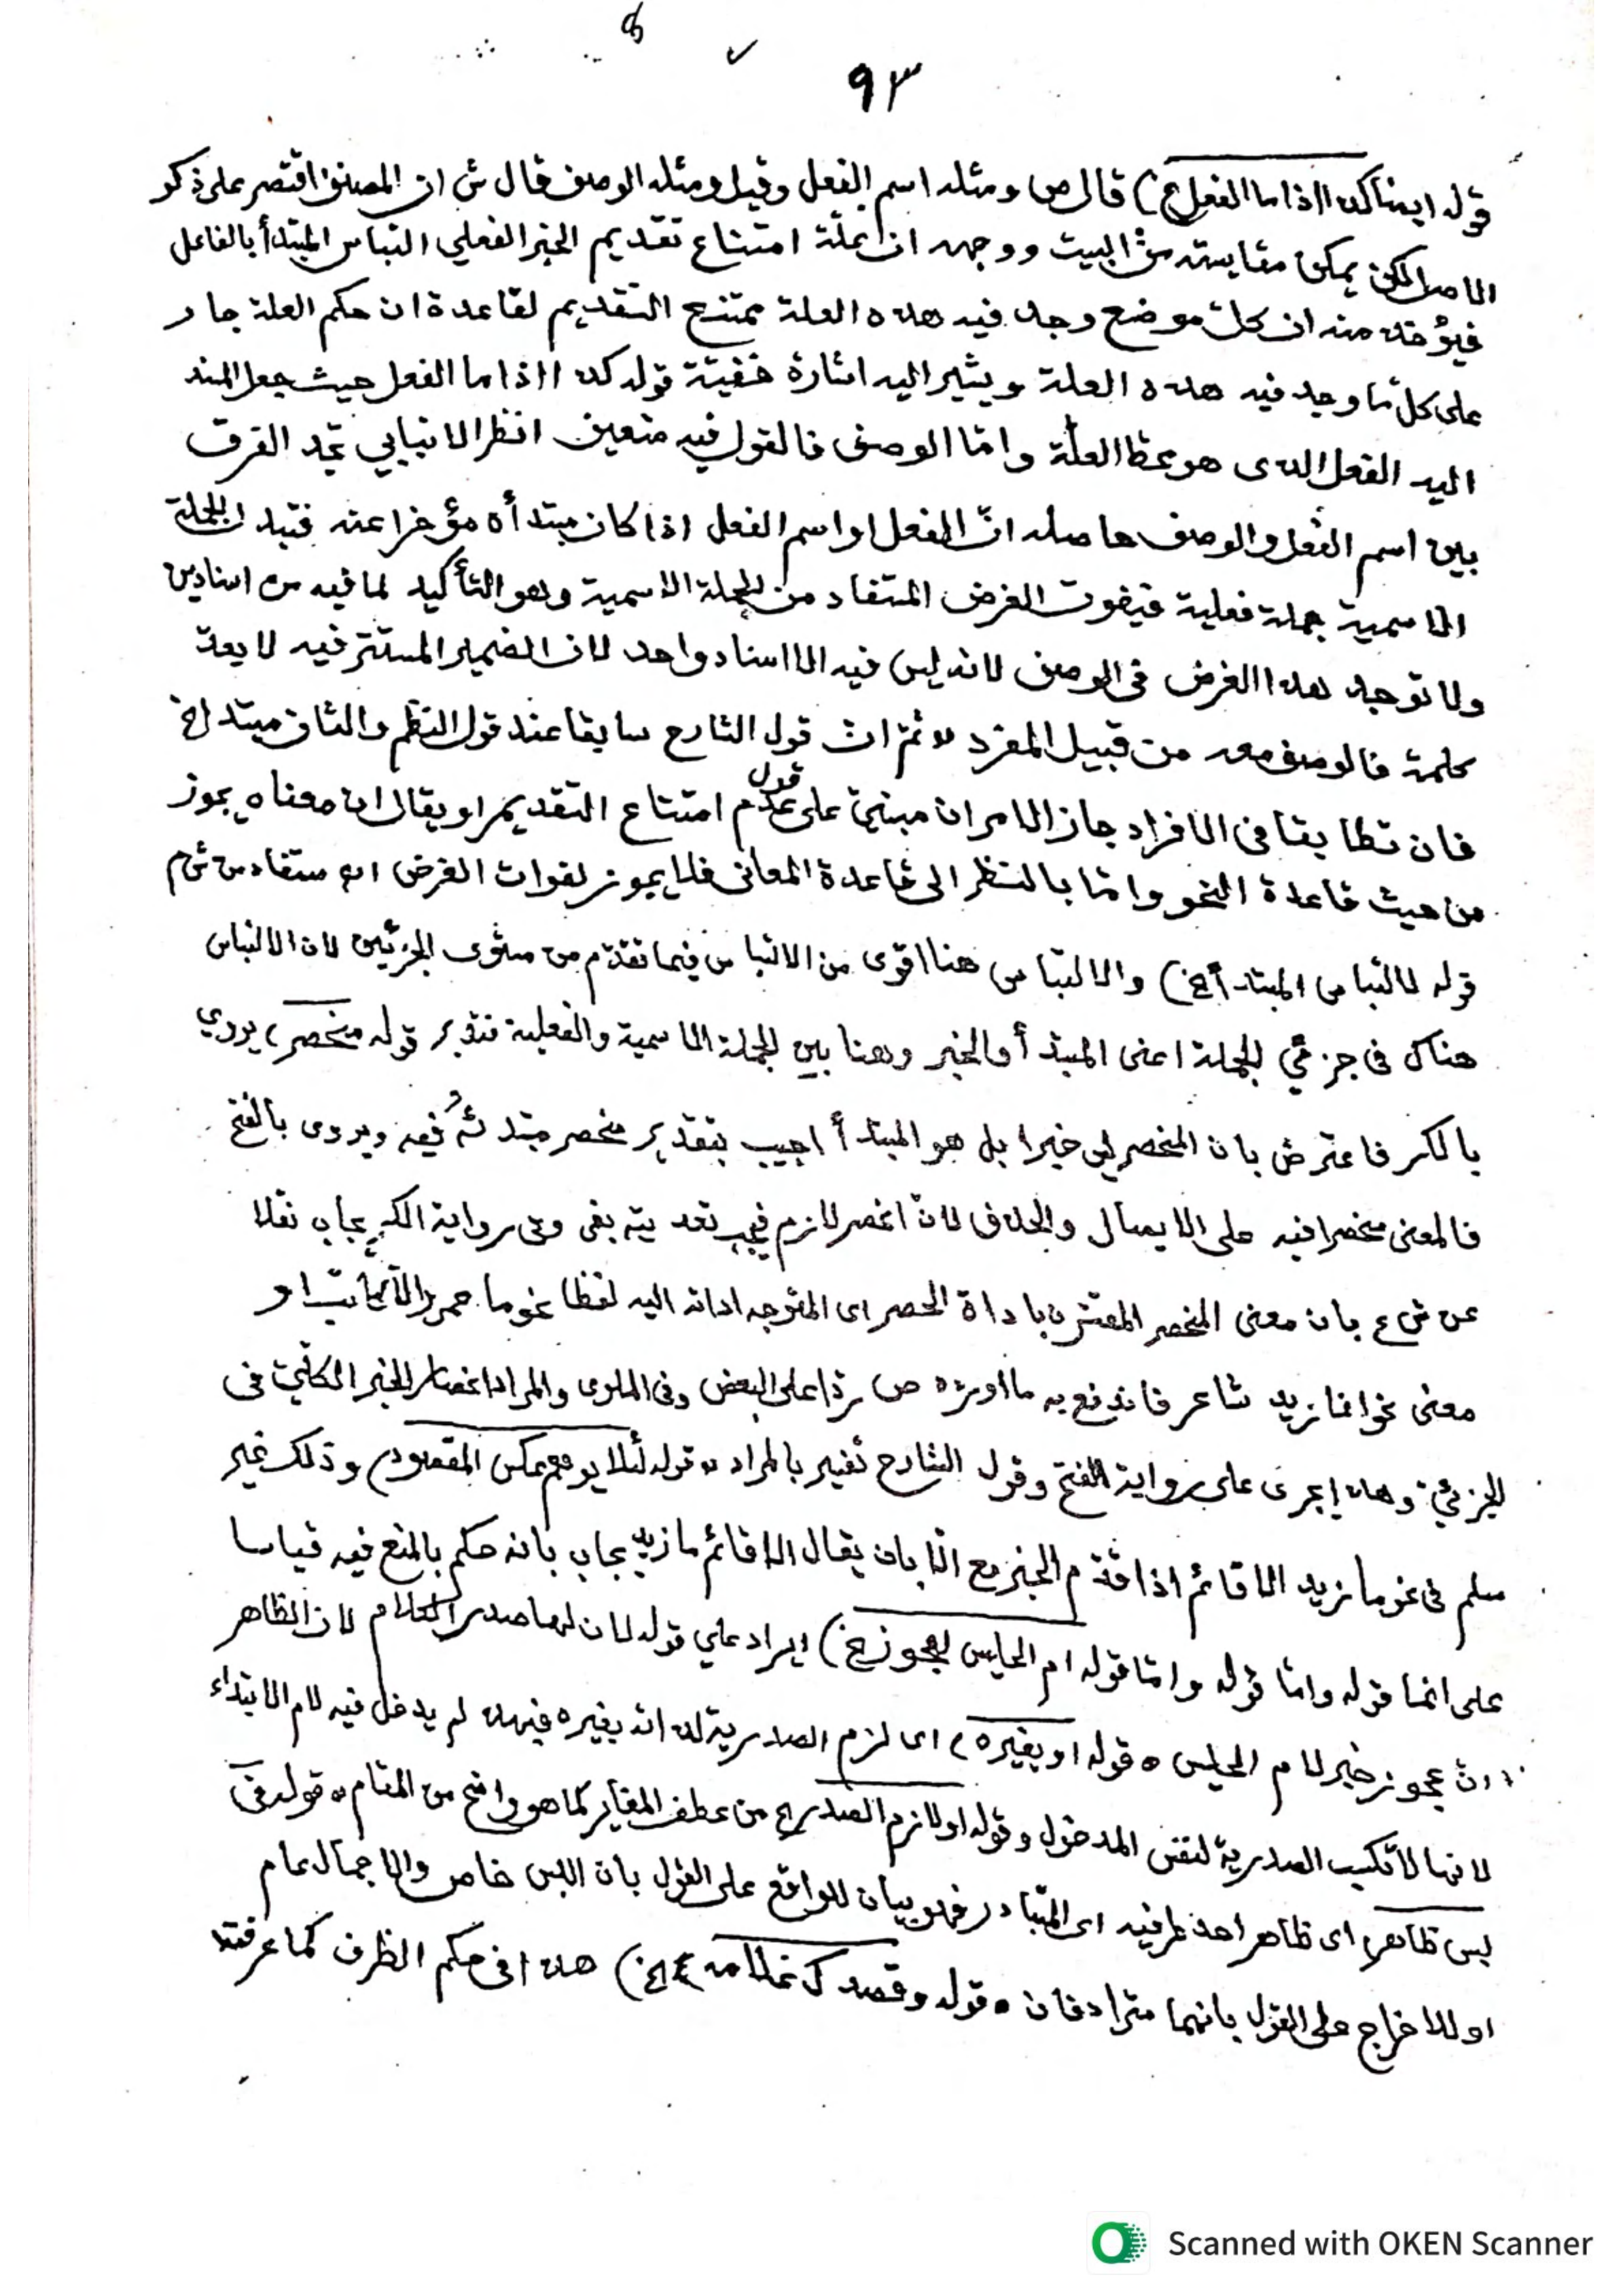 ٩٣
قوله ايضا كذا اذا ما الفعل الخ) قال ص ومثله اسم الفعل وقيل ومثله الوصف قال ش ان المصنف اقتصر على ذكر
الاصل لكن يمكن مقايسته من البيت ووجهه ان علة امتناع تقديم الخبر الفعلي التباس المبتدأ بالفاعل
فيؤخذ منه ان كل موضع وجد فيه هذه العلة يمتنع التقديم لقاعدة ان حكم العلة جار
على كل ما وجد فيه هذه العلة ويشير اليه اشارة خفية قوله كذا اذا ما الفعل حيث جعل المسند
اليه الفعل الذى هو محط العلة واما الوصف فالقول فيه متعين انظر الانبابي تجد الفرق
بين اسم الفعل والوصف حاصله ان الفعل او اسم الفعل اذا كان مبتدأه مؤخرا عنه فتبدل الجملة
الاسمية جملة فعلية فيفوت الغرض المستفاد من الجملة الاسمية وهو التأكيد لما فيه من اسنادين
ولا توجد هذا الغرض فى الوصف لانه ليس فيه الا اسناد واحد لان الضمير المستتر فيه لا يعد
كلمة فالوصف معه من قبيل المفرد ثم ان قول الشارح سابقا عند قول النظم والثان مبتدا الخ
فان تطابقا فى الافراد جاز الامران مبني على قول عدم امتناع التقديم او يقال ان معناه يجوز
من حيث قاعدة النحو واما بالنظر الى قاعدة المعانى فلا يجوز لفوات الغرض اه مستفاد من ش م
قوله لالتباس المبتدأ الخ) والالتباس هنا اقوى من الالتباس فيما تقدم من مستوى الجزئين لان الالتباس
هناك فى جزئي الجملة اعنى المبتدأ والخبر وهنا بين الجملة الاسمية والفعلية فتدبر قوله منحصر) يروي
بالكسر فاعترض بان المنحصر ليس خبرا بل هو المبتدأ اجيب بتقدير منحصر مبتدئه فيه ويروى بالفتح
فالمعنى منحصرا فيه على الايصال والحذف لان انحصر لازم فيجب تعديته بفى وعلى رواية الكسر يجاب نقلا
عن ش ع بان معنى المنحصر المقترن باداة الحصر اى المتوجه اداته اليه لفظا نحو ما عمرو الا كاتب او
معنى نحو انما زيد شاعر فاندفع به ما اورده ص ردا على البعض وفى الملوى والمراد انحصار الخبر الكلي فى
الجزئي وهذا يجرى على رواية الفتح وقول الشارح تفسير بالمراد قوله لئلا يوهم عكس المقصود) وذلك غير
مسلم فى نحو ما زيد الا قائم اذا قدم الخبر مع الا بان يقال الا قائم ما زيد يجاب بانه حكم بالمنع فيه قياسا
على انما قوله واما قوله واما قوله ام الحليس لعجوز الخ) ايراد على قوله لان لها صدر الكلام لان الظاهر
ان عجوز خبر لام الحليس ه قوله او بغيره) اى لزم الصدرية لذاته بغيره فيهن لم يدخل فيه لام الابتداء
لانها لا تكسب الصدرية لنفس المدخول وقوله او لازم الصدر الخ من عطف المغاير كما هو واضح من المقام ه قوله فى
لبس ظاهر) اى ظاهر احد طرفيه اى المتبادر فهو بيان للواقع على القول بان اللبس خاص والاجمال عام
او للاخراج على القول بانهما مترادفان ه قوله وقصدك غلامه الخ) هذا فى حكم الظرف كما عرفته
Scanned with OKEN Scanner